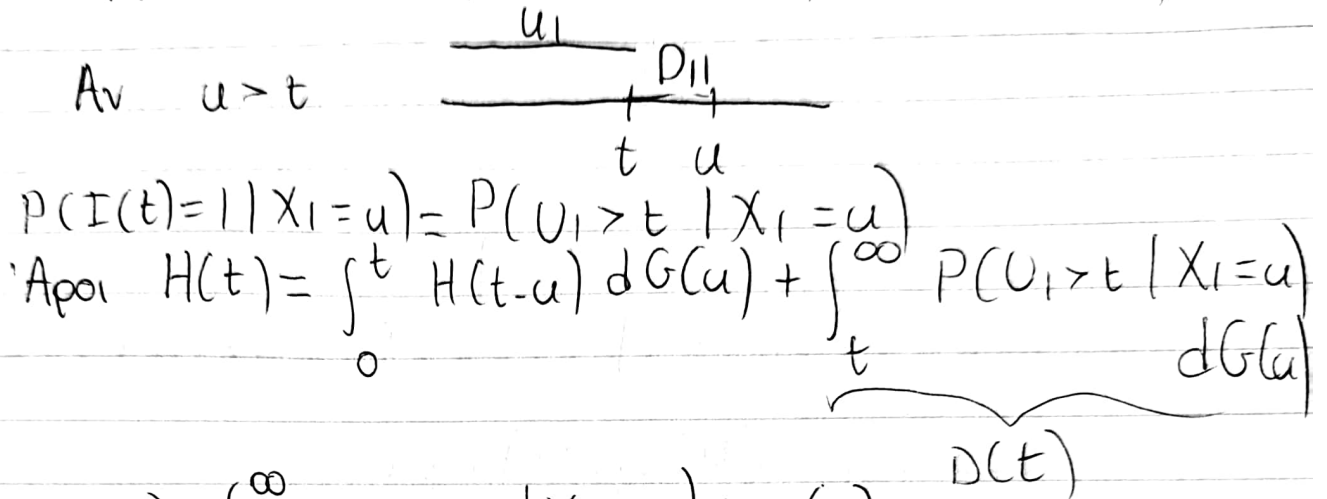 U1
Αν u > t D11
t u
P(I(t)=1 | X1 = u) = P(U1 > t | X1 = u)
Άροι H(t) = ∫₀ᵗ H(t-u) dG(u) + ∫ₜ^∞ P(U1 > t | X1 = u) dG(u)
D(t)
∞